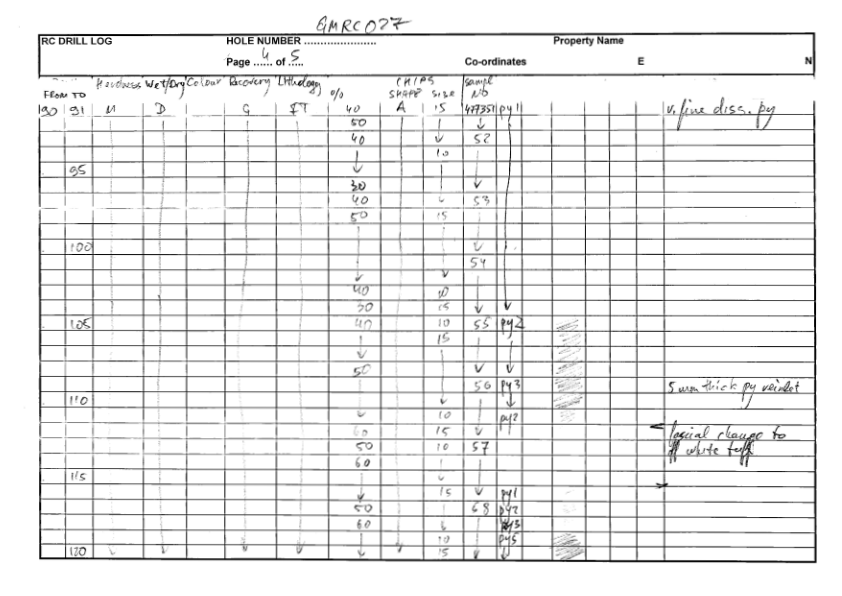 GMRC027
RC DRILL LOG HOLE NUMBER ........................ Property Name
Page 4 of 5 Co-ordinates E N
Hardness Wet/Dry Colour Recovery Lithology CHIPS sample
FROM TO % SHAPE SIZE NO
90 91 M D G FT 40 A 15 477351 py1 v. fine diss. py
50
40 52
10
95
30
40 53
50 15
100
54
40 10
30 15
105 40 10 55 py2
15
50
56 py3 5 mm thick py veinlet
110
10 py2
60 15 facial change to
50 10 57 off white tuff
60
115
15 py1
50 68 py2
60 py3
10 py5
120 15